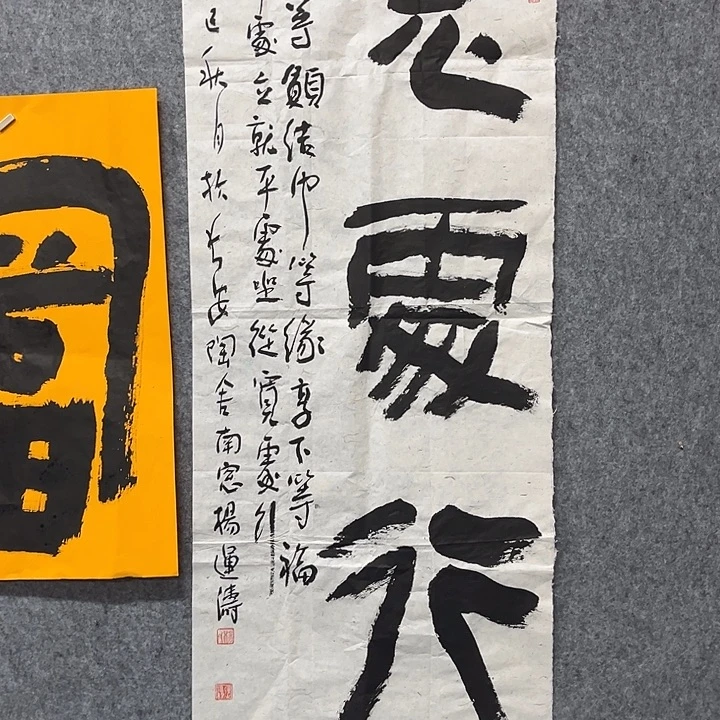 處行
等願結中等緣享下等福
處立就平處坐從寬處行
巳秋月於長安陶舍南窗楊運濤